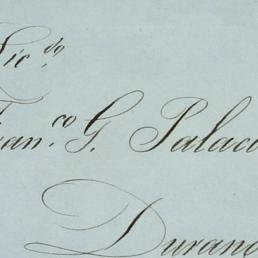 Lic.do
Fran.co G. Palac
Durang